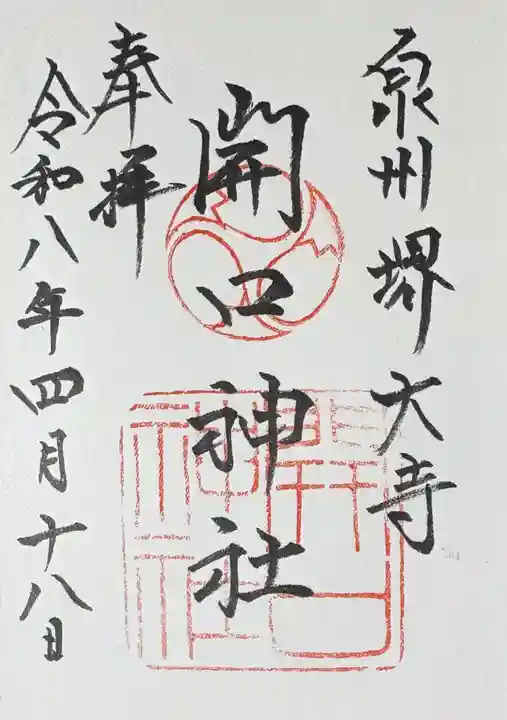 泉州堺大寺
開口神社
奉拝
令和八年四月十八日
開口神社